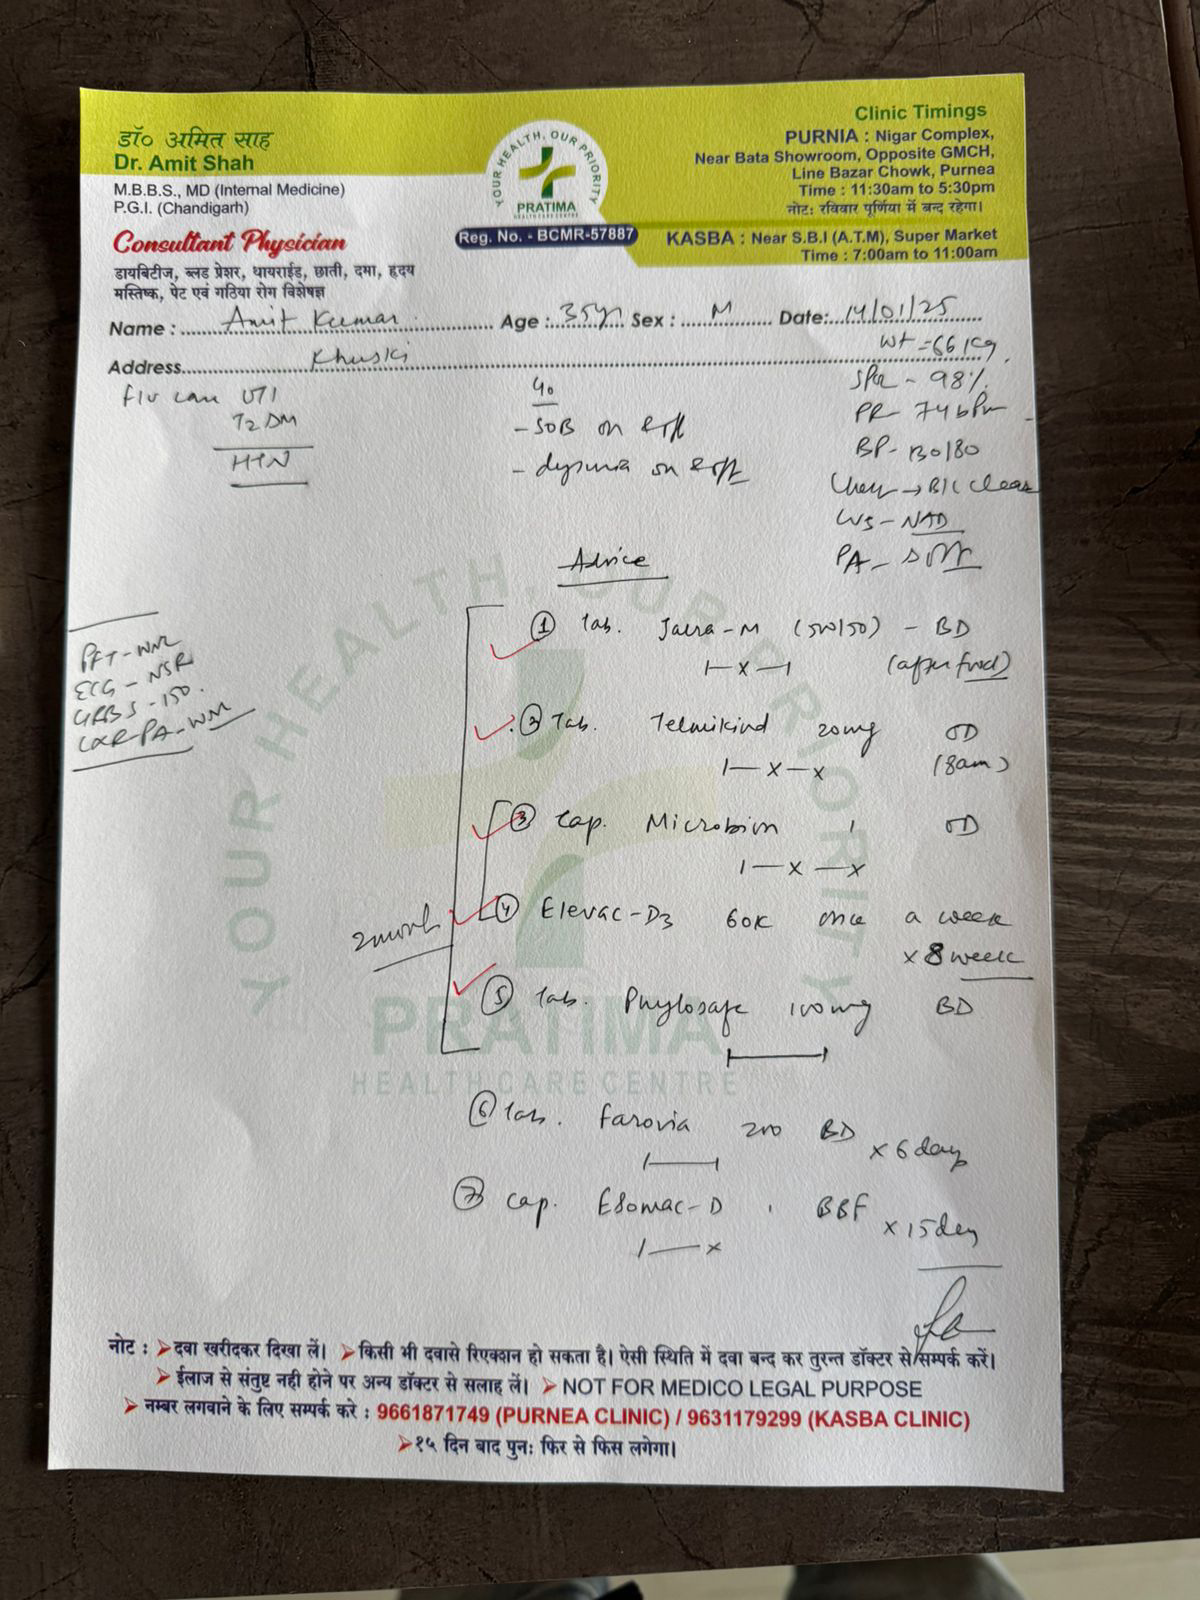 डॉ० अमित साह
Dr. Amit Shah
M.B.B.S., MD (Internal Medicine)
P.G.I. (Chandigarh)
Consultant Physician
डायबिटीज, ब्लड प्रेशर, थायराईड, छाती, दमा, हृदय
मस्तिष्क, पेट एवं गठिया रोग विशेषज्ञ
YOUR HEALTH, OUR PRIORITY
PRATIMA
HEALTH CARE CENTRE
Reg. No. - BCMR-57887
Clinic Timings
PURNIA : Nigar Complex,
Near Bata Showroom, Opposite GMCH,
Line Bazar Chowk, Purnea
Time : 11:30am to 5:30pm
नोट: रविवार पूर्णिया में बन्द रहेगा।
KASBA : Near S.B.I (A.T.M), Super Market
Time : 7:00am to 11:00am
Name : Amit Kumar Age : 35yr Sex : M Date: 14/01/25
Address Khuski
Wt = 66 kg
f/u case UTI
T2DM
HTN
- SOB on &off
- dysuria on &off
SPo2 - 98%
PR - 74 bpm
BP - 130/80
Chest → B/L clear
CVS - NAD
PA - soft
Advice
PFT - WNL
ECG - NSR
GRBS - 150.
CXR PA - WNL
① Tab. (500/50) - BD
1-x-1 (after food)
② Tab. Telmikind 20mg OD
1-x-x (8am)
③ Cap. OD
1-x-x
④ Elevac-D3 60K once a week
x 8 week
2 month
⑤ Tab. Phylosafe 100mg BD
⑥ Tab. Farovia 200 BD x 6 days
⑦ Cap. Esomac-D 1 BBF x 15 day
1-x
YOUR HEALTH, OUR PRIORITY
PRATIMA
HEALTH CARE CENTRE
नोट : ➤दवा खरीदकर दिखा लें। ➤किसी भी दवासे रिएक्शन हो सकता है। ऐसी स्थिति में दवा बन्द कर तुरन्त डॉक्टर से सम्पर्क करें।
➤ईलाज से संतुष्ट नही होने पर अन्य डॉक्टर से सलाह लें। ➤ NOT FOR MEDICO LEGAL PURPOSE
➤ नम्बर लगवाने के लिए सम्पर्क करे : 9661871749 (PURNEA CLINIC) / 9631179299 (KASBA CLINIC)
➤१५ दिन बाद पुनः फिर से फिस लगेगा।